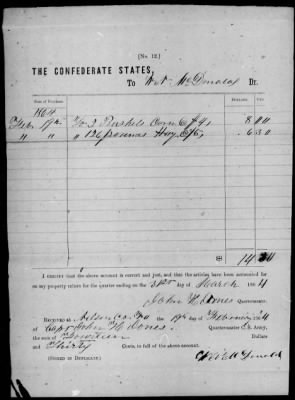 [No. 12.]
THE CONFEDERATE STATES,
To W. N. McDonald Dr.
Date of Purchase. Dollars. Cts.
1864
Feby 19th To 2 Bushels Corn @ $4, 8 00
" " " 126 pounds Hay @ 5, 6 30
14 30
I CERTIFY that the above account is correct and just, and that the articles have been accounted for
on my property return for the quarter ending on the 31st day of March 1864
John H Jones Quartermaster.
RECEIVED at Nelson Co Va the 19th of February 1864
of Capt John H. Jones. Quartermaster C.S. Army,
the sum of Fourteen Dollars
and Thirty Cents, in full of the above account.
(SIGNED IN DUPLICATE.)
McDonald